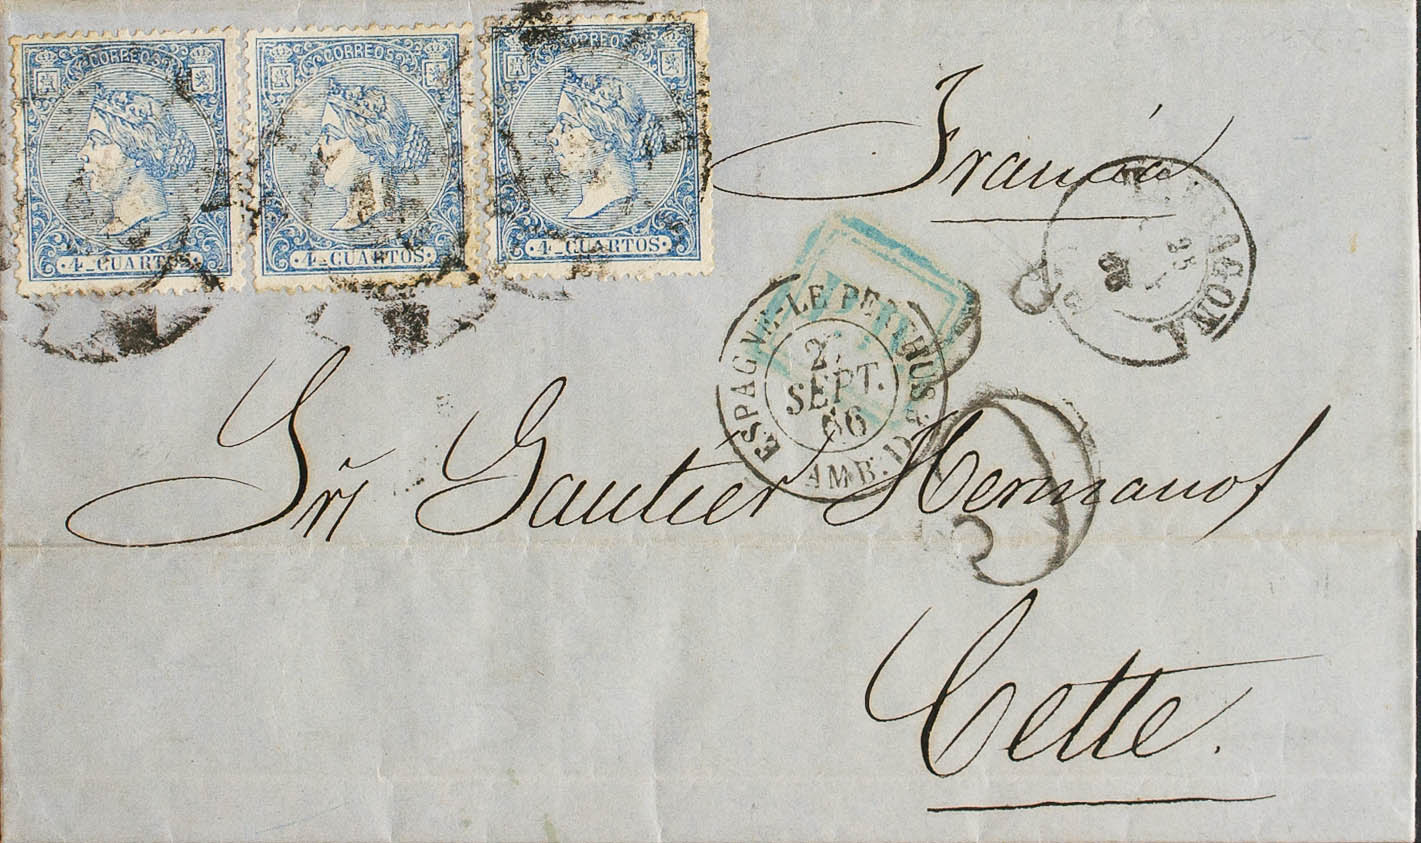 CORREOS
4 CUARTOS
CORREOS
4 CUARTOS
CORREOS
4 CUARTOS
Francia
TARRAGONA
25
ESPAGNE-LE PERTHUS
SEPT.
66
AMB. D
Srs Gautier Hermanos
Cette.